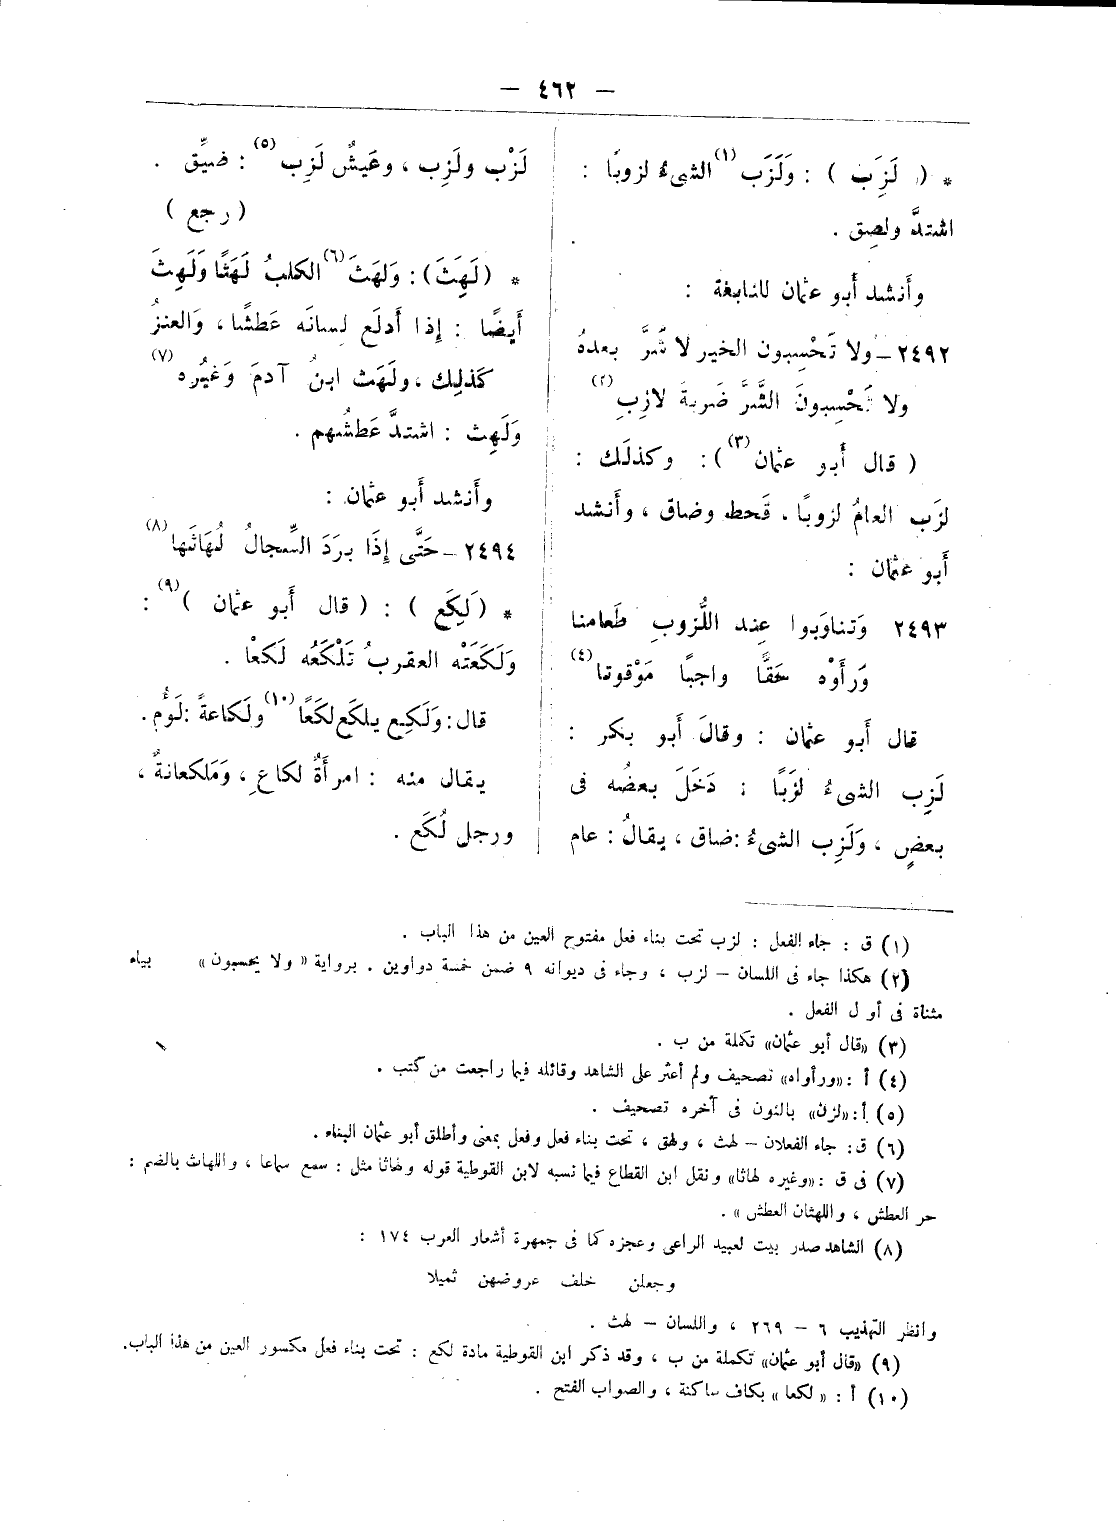 — ٤٦٢ —
* ( لَزِبَ ) : وَلَزَب (١) الشىءُ لزوبًا :
اشتدَّ ولصِق .
وأنشد أبو عثمان للنابغة :
٢٤٩٢ – ولا تَحْسِبون الخير لا شَرَّ بعدهُ
ولا تَحْسِبونَ الشَّرَّ ضَربةَ لازبِ (٢)
( قال أبو عثمان (٣) ) : وكذلَك :
لزَب العامُ لزوبًا . قَحط وضاق ، وأَنشد
أَبو عثمان :
٢٤٩٣ وَتناوَبوا عِند اللُّزوبِ طَعامنا
وَرأَوْه حَقًّا واجبًا مَوْقوتا (٤)
قال أَبو عثمان : وقالَ أَبو بكر :
لَزِب الشىءُ لَزَبًا : دَخَلَ بعضُه فى
بعضٍ ، وَلَزِب الشىءُ : ضاق ، يقالُ : عام
لَزْب ولَزِب ، وعَيشٌ لَزِب (٥) : ضيِّق .
( رجع )
* (لَهِثَ) : وَلهَثَ (٦) الكلبُ لَهَثًا وَلَهِثَ
أَيضًا : إذا أَدلَع لسانَه عَطشًا ، وَالعنزُ
كَذلِك ، ولَهَث ابنُ آدمَ وَغيرُه (٧)
وَلَهِث : اشتدَّ عَطشُهم .
وأَنشد أَبو عثمان :
٢٤٩٤ – حَتَّى إِذَا بردَ السِّجالُ لُهَاثَها (٨)
* (لَكِعَ ) : ( قال أَبو عثمان ) (٩) :
وَلَكَعَتْه العقربُ تَلْكَعُه لَكعْا .
قال : وَلَكِع يلكَع لكَعًا (١٠) ولَكاعةً : لَؤُم .
يقال منه : امرأَةٌ لكاعِ ، وَمَلكعانةٌ ،
ورجل لُكَع .
(١) ق : جاء الفعل : لزب تحت بناء فعل مفتوح العين من هذا الباب .
(٢) هكذا جاء فى اللسان – لزب ، وجاء فى ديوانه ٩ ضمن خمسة دواوين . برواية « ولا يحسبون » بياء
مثناة فى أو ل الفعل .
(٣) «قال أبو عثمان» تكملة من ب .
(٤) أ : «ورأواه» تصحيف ولم أعثر على الشاهد وقائله فيما راجعت من كتب .
(٥) أ : «لزن» بالنون فى آخره تصحيف .
(٦) ق : جاء الفعلان – لهث ، ولهق ، تحت بناء فعل وفعل بمعنى وأطلق أبو عثمان البناء .
(٧) فى ق : «وغيره لهاثا» ونقل ابن القطاع فيما نسبه لابن القوطية قوله ولهاثا مثل : سمع سماعا ، واللهاث بالضم :
حر العطش ، واللهثان العطش » .
(٨) الشاهد صدر بيت لعبيد الراعى وعجزه كما فى جمهرة أشعار العرب ١٧٤ :
وجعلن خلف عروضهن ثميلا
وانظر التهذيب ٦ – ٢٦٩ ، واللسان – لهث .
(٩) «قال أبو عثمان» تكملة من ب ، وقد ذكر ابن القوطية مادة لكع : تحت بناء فعل مكسور العين من هذا الباب.
(١٠) أ : « لكعا » بكاف ساكنة ، والصواب الفتح .